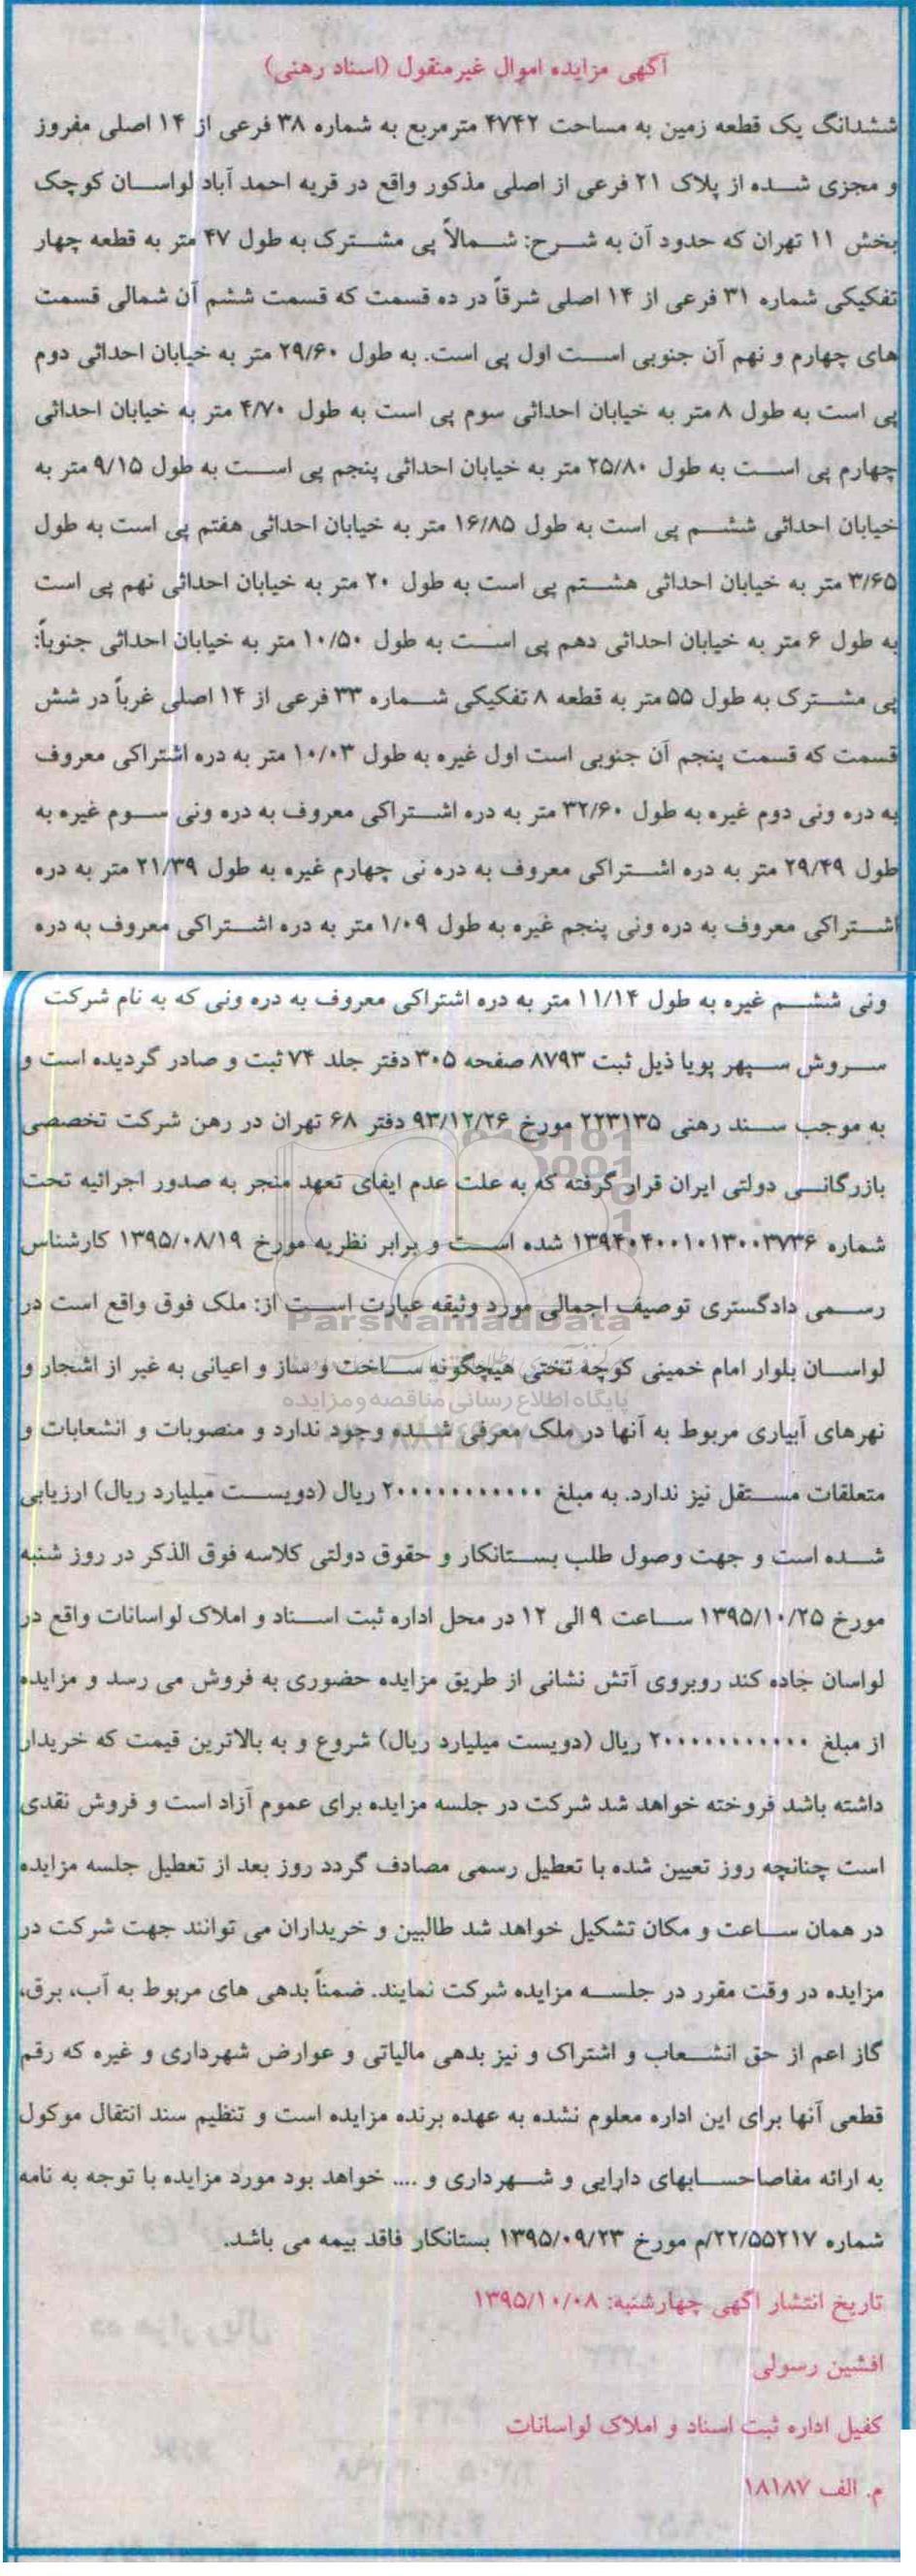 آگهی مزایده اموال غیرمنقول (اسناد رهنی)
ششدانگ یک قطعه زمین به مساحت ۴۷۴۲ مترمربع به شماره ۳۸ فرعی از ۱۴ اصلی مفروز
و مجزی شده از پلاک ۲۱ فرعی از اصلی مذکور واقع در قریه احمد آباد لواسان کوچک
بخش ۱۱ تهران که حدود آن به شرح: شمالاً پی مشترک به طول ۴۷ متر به قطعه چهار
تفکیکی شماره ۳۱ فرعی از ۱۴ اصلی شرقاً در ده قسمت که قسمت ششم آن شمالی قسمت
های چهارم و نهم آن جنوبی است اول پی است. به طول ۲۹/۶۰ متر به خیابان احداثی دوم
پی است به طول ۸ متر به خیابان احداثی سوم پی است به طول ۴/۷۰ متر به خیابان احداثی
چهارم پی است به طول ۲۵/۸۰ متر به خیابان احداثی پنجم پی است به طول ۹/۱۵ متر به
خیابان احداثی ششم پی است به طول ۱۶/۸۵ متر به خیابان احداثی هفتم پی است به طول
۳/۶۵ متر به خیابان احداثی هشتم پی است به طول ۲۰ متر به خیابان احداثی نهم پی است
به طول ۶ متر به خیابان احداثی دهم پی است به طول ۱۰/۵۰ متر به خیابان احداثی جنوباً:
پی مشترک به طول ۵۵ متر به قطعه ۸ تفکیکی شماره ۳۳ فرعی از ۱۴ اصلی غرباً در شش
قسمت که قسمت پنجم آن جنوبی است اول غیره به طول ۱۰/۰۳ متر به دره اشتراکی معروف
به دره ونی دوم غیره به طول ۳۲/۶۰ متر به دره اشتراکی معروف به دره ونی سوم غیره به
طول ۲۹/۴۹ متر به دره اشتراکی معروف به دره نی چهارم غیره به طول ۲۱/۳۹ متر به دره
اشتراکی معروف به دره ونی پنجم غیره به طول ۱/۰۹ متر به دره اشتراکی معروف به دره
ونی ششم غیره به طول ۱۱/۱۴ متر به دره اشتراکی معروف به دره ونی که به نام شرکت
سروش سپهر پویا ذیل ثبت ۸۷۹۳ صفحه ۳۰۵ دفتر جلد ۷۴ ثبت و صادر گردیده است و
به موجب سند رهنی ۲۲۳۱۳۵ مورخ ۹۳/۱۲/۲۶ دفتر ۶۸ تهران در رهن شرکت تخصصی
بازرگانی دولتی ایران قرار گرفته که به علت عدم ایفای تعهد منجر به صدور اجرائیه تحت
شماره ۱۳۹۴۰۴۰۰۱۰۱۳۰۰۳۷۳۶ شده است و برابر نظریه مورخ ۱۳۹۵/۰۸/۱۹ کارشناس
رسمی دادگستری توصیف اجمالی مورد وثیقه عبارت است از: ملک فوق واقع است در
لواسان بلوار امام خمینی کوچه تختی هیچگونه ساخت و ساز و اعیانی به غیر از اشجار و
نهرهای آبیاری مربوط به آنها در ملک معرفی شده وجود ندارد و منصوبات و انشعابات و
متعلقات مستقل نیز ندارد. به مبلغ ۲۰۰۰۰۰۰۰۰۰۰۰ ریال (دویست میلیارد ریال) ارزیابی
شده است و جهت وصول طلب بستانکار و حقوق دولتی کلاسه فوق الذکر در روز شنبه
مورخ ۱۳۹۵/۱۰/۲۵ ساعت ۹ الی ۱۲ در محل اداره ثبت اسناد و املاک لواسانات واقع در
لواسان جاده کند روبروی آتش نشانی از طریق مزایده حضوری به فروش می رسد و مزایده
از مبلغ ۲۰۰۰۰۰۰۰۰۰۰۰ ریال (دویست میلیارد ریال) شروع و به بالاترین قیمت که خریدار
داشته باشد فروخته خواهد شد شرکت در جلسه مزایده برای عموم آزاد است و فروش نقدی
است چنانچه روز تعیین شده با تعطیل رسمی مصادف گردد روز بعد از تعطیل جلسه مزایده
در همان ساعت و مکان تشکیل خواهد شد طالبین و خریداران می توانند جهت شرکت در
مزایده در وقت مقرر در جلسه مزایده شرکت نمایند. ضمناً بدهی های مربوط به آب، برق،
گاز اعم از حق انشعاب و اشتراک و نیز بدهی مالیاتی و عوارض شهرداری و غیره که رقم
قطعی آنها برای این اداره معلوم نشده به عهده برنده مزایده است و تنظیم سند انتقال موکول
به ارائه مفاصاحسابهای دارایی و شهرداری و .... خواهد بود مورد مزایده با توجه به نامه
شماره ۲۲/۵۵۲۱۷/م مورخ ۱۳۹۵/۰۹/۲۳ بستانکار فاقد بیمه می باشد.
تاریخ انتشار آگهی چهارشنبه: ۱۳۹۵/۱۰/۰۸
افشین رسولی
کفیل اداره ثبت اسناد و املاک لواسانات
م. الف ۱۸۱۸۷
ParsNamadData
پایگاه اطلاع رسانی مناقصه و مزایده